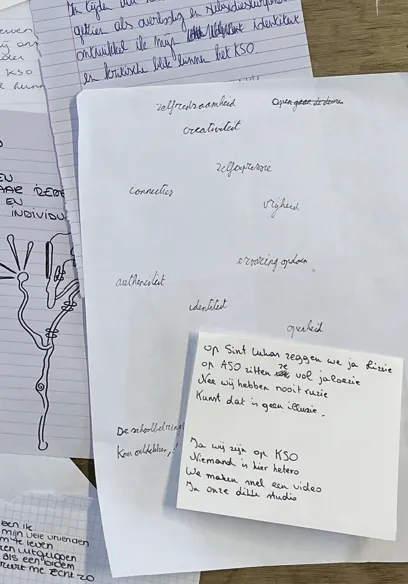 In tijden van
gezien als overbodig en subsidieslurpend
ontwikkel ik mijn identiteit
en kritische blik binnen het KSO
KSO
EN
INDIVIDU
zelfredzaamheid
open gaande deuren
creativiteit
zelfexpressie
connecties
vrijheid
ervaring opdoen
authenciteit
identiteit
openheid
De schoolbel ring
Kan ontdekken,
Op Sint Lukas zeggen we ja Rizzie
op ASO zitten ze vol jaloezie
Nee wij hebben nooit ruzie
Kunst dat is geen illuzie.
Ja wij zijn op KSO
Niemand is hier hetero
We maken snel een video
In onze dikke studio
ben ik
mijn vele vrienden
te leven
als een bloem
echt zo